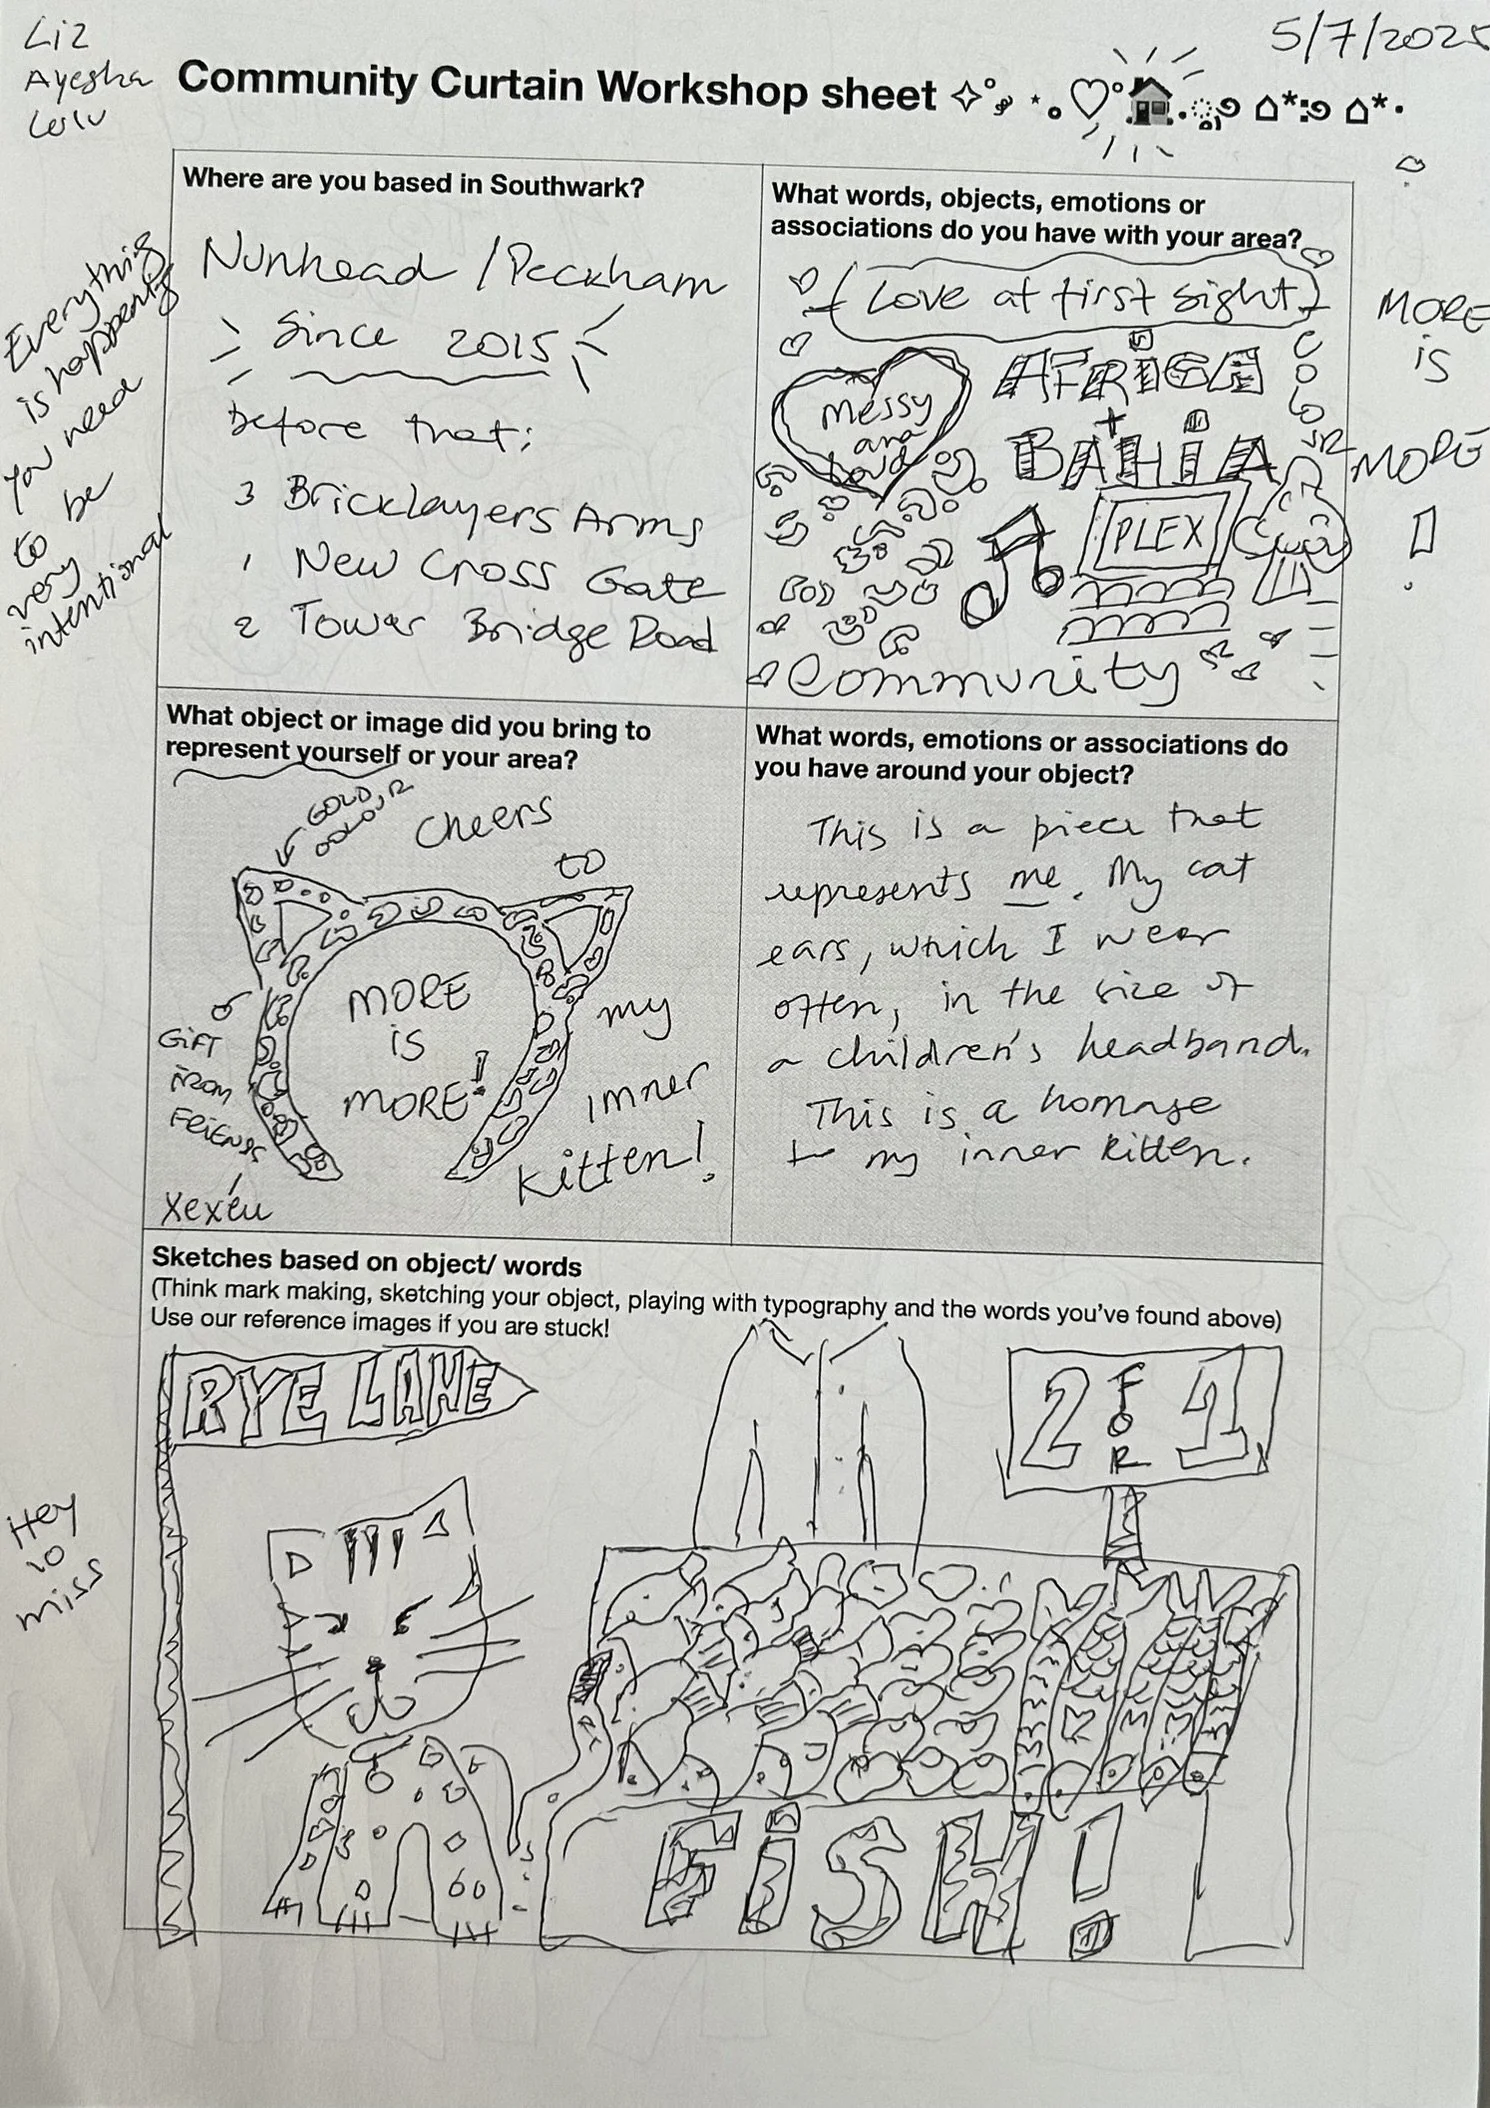 Liz
Ayesha
Lulu
5/7/2025
Community Curtain Workshop sheet
Everything
is happening
you need
to
be
very
intentional
Where are you based in Southwark?
Nunhead / Peckham
Since 2015
before that:
3 Bricklayers Arms
1 New Cross Gate
2 Tower Bridge Road
What words, objects, emotions or
associations do you have with your area?
Love at first sight
messy
and
loud
AFRICA
+
BAHIA
COLOUR
PLEX
Community
MORE
is
MORE
!
What object or image did you bring to
represent yourself or your area?
GOLD
COLOUR
Cheers
to
my
inner
kitten!
MORE
is
MORE!
GIFT
FROM
FRIENDS
Xexéu
What words, emotions or associations do
you have around your object?
This is a piece that
represents me. My cat
ears, which I wear
often, in the size of
a children's headband.
This is a homage
to my inner kitten.
Sketches based on object/ words
(Think mark making, sketching your object, playing with typography and the words you've found above)
Use our reference images if you are stuck!
RYE LANE
2 FOR 1
Hey
miss
FiSH!